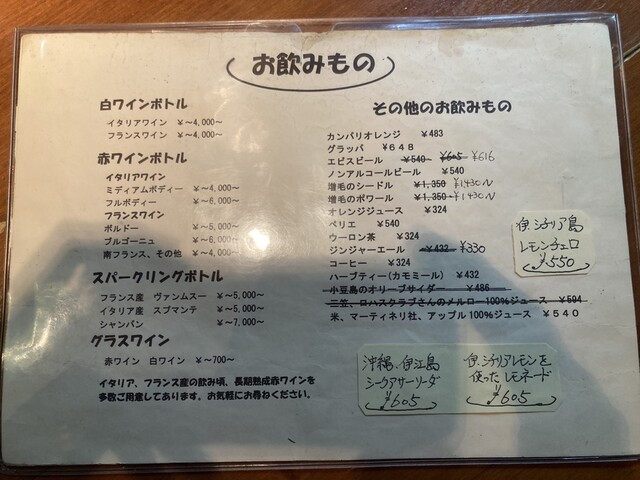 お飲みもの
白ワインボトル
イタリアワイン ￥〜4,000〜
フランスワイン ￥〜4,000〜
赤ワインボトル
イタリアワイン
ミディアムボディー ￥〜4,000〜
フルボディー ￥〜6,000〜
フランスワイン
ボルドー ￥〜5,000〜
ブルゴーニュ ￥〜6,000〜
南フランス、その他 ￥〜4,000〜
スパークリングボトル
フランス産 ヴァンムスー ￥〜5,000〜
イタリア産 スプマンテ ￥〜5,000〜
シャンパン ￥〜7,000〜
グラスワイン
赤ワイン 白ワイン ￥〜700〜
イタリア、フランス産の飲み頃、長期熟成赤ワインを
多数ご用意してあります。お気軽にお尋ねください。
その他のお飲みもの
カンパリオレンジ ￥483
グラッパ ￥６４８
エビスビール ￥540 ￥605 ￥616
ノンアルコールビール ￥540
増毛のシードル ￥1,350 ￥1,430
増毛のポワール ￥1,350 ￥1,430
オレンジジュース ￥324
ペリエ ￥540
ウーロン茶 ￥324
ジンジャーエール ￥432 ￥330
コーヒー ￥324
ハーブティー(カモミール) ￥432
小豆島のオリーブサイダー ￥486
三笠、ロハスクラブさんのメルロー100%ジュース ￥594
米、マーティネリ社、アップル100%ジュース ￥540
伊.シチリア島
レモンチェロ
￥550
沖縄.伊江島
シークアサーソーダ
￥605
伊.シチリアレモンを
使ったレモネード
￥605